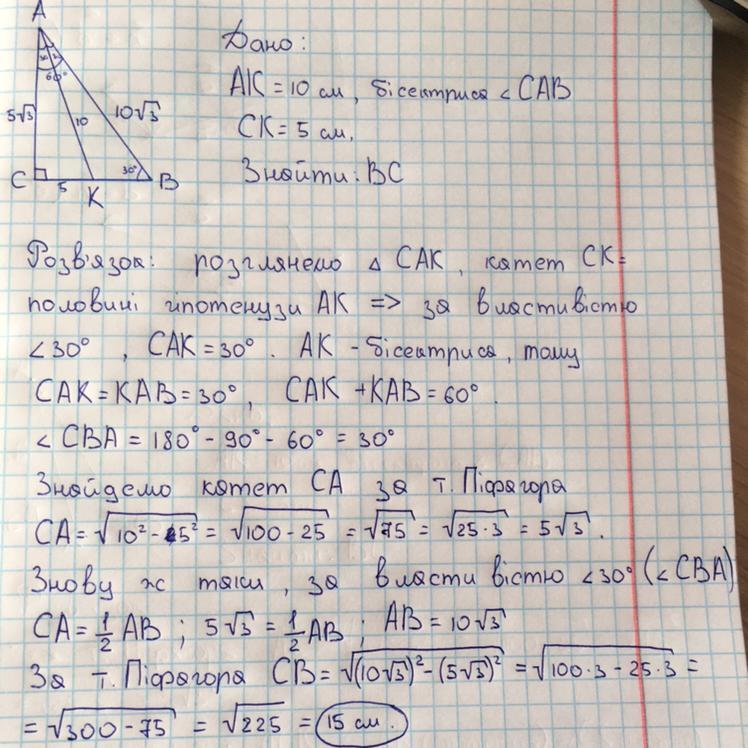 A
60°
5√3
10
10√3
30°
C
5
K
B
Дано:
AK = 10 см, бісектриса ∠ CAB
CK = 5 см.
Знайти: BC
Розв'язок: розглянемо △ CAK, катет CK =
половині гіпотенузи AK => за властивістю
∠30°, CAK = 30°. AK - бісектриса, тому
CAK = KAB = 30°, CAK + KAB = 60°.
∠ CBA = 180° - 90° - 60° = 30°
Знайдемо катет CA за т. Піфагора
CA = √(10² - 5²) = √(100 - 25) = √75 = √(25·3) = 5√3.
Знову ж таки, за властивістю ∠30° (∠ CBA)
CA = 1/2 AB ; 5√3 = 1/2 AB ; AB = 10√3
За т. Піфагора CB = √((10√3)² - (5√3)²) = √(100·3 - 25·3) =
= √(300 - 75) = √225 = 15 см.